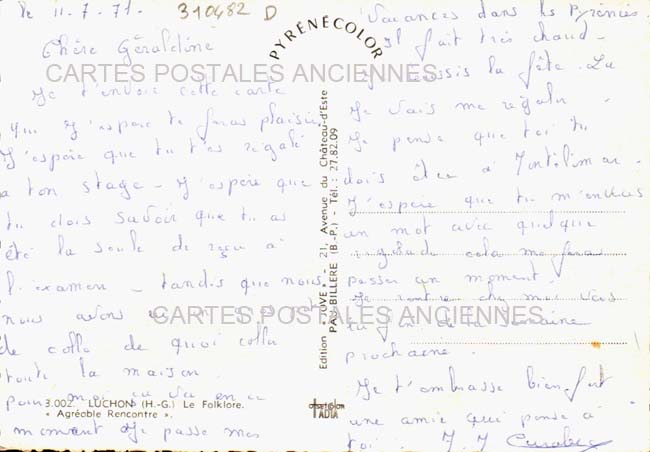 le 11.7.71.
310482 D
Chère Géraldine
CARTES POSTALES ANCIENNES
Je t'envoie cette carte
qui j'espère te feras plaisir
J'espère que tu t'es régalé
a ton stage - J'espère que
tu dois savoir que tu as
été la seule de reçu à
l'examen - tandis que nous
nous avons eu un
CARTES POSTALES ANCIENNES
de colle de quoi coller
toute la maison.
3.002. LUCHON (H.-G.) Le Folklore.
« Agréable Rencontre ».
pour moi ça va en ce
moment Je passe mes
PYRÉNÉCOLOR
Edition « JOUVE » - 21, Avenue du Château-d'Este
PAU-BILLERE (B.-P.) Tél.: 27.82.09
Vacances dans les Pyrénées.
Il fait très chaud -
la fête. La
Je vais me régaler.
Je pense que toi tu
dois être a Montélimar.
J'espère que tu m'enverras
un mot avec quelque
cela me fera
passer un moment.
Je rentre chez moi vers
la fin de la semaine
prochaine.
Je t'embrasse bien fort
une amie qui pense à
toi. J. J